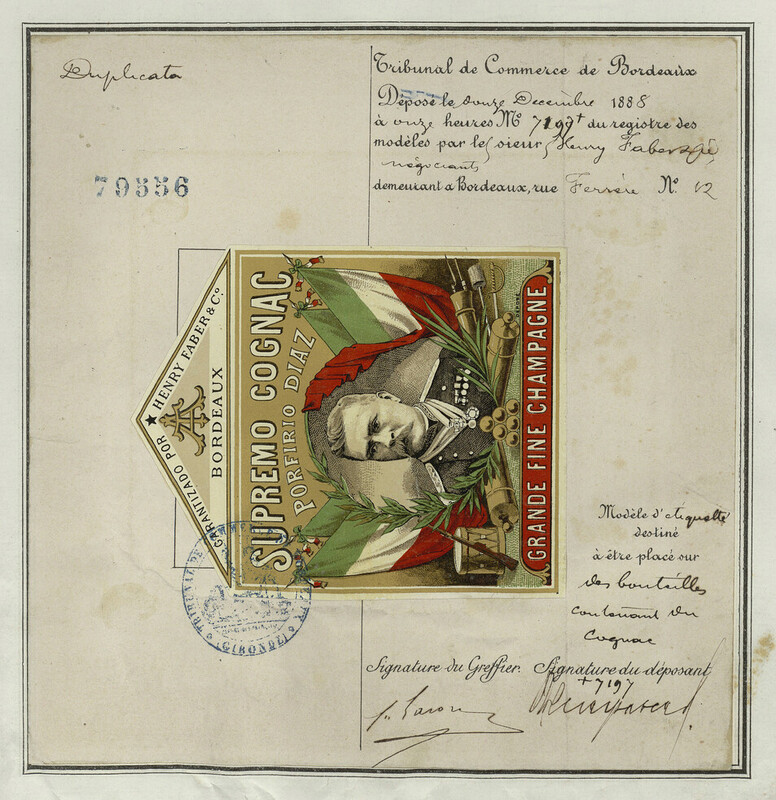 Duplicata
Tribunal de Commerce de Bordeaux
Déposé le onze Decembre 1888
à onze heures Nº 7197 du registre des
modèles par le sieur Henry Faber & Cie
négociants
demeurant a Bordeaux, rue Ferrère Nº 12
79556
GARANTIZADO POR ★ HENRY FABER & Cº
BORDEAUX
SUPREMO COGNAC
PORFIRIO DIAZ
GRANDE FINE CHAMPAGNE
Modèle d'étiquette
destiné
à être placé sur
des bouteilles
contenant du
Cognac
TRIBUNAL DE COMMERCE
(GIRONDE)
Signature du Greffier. Signature du déposant
+7197